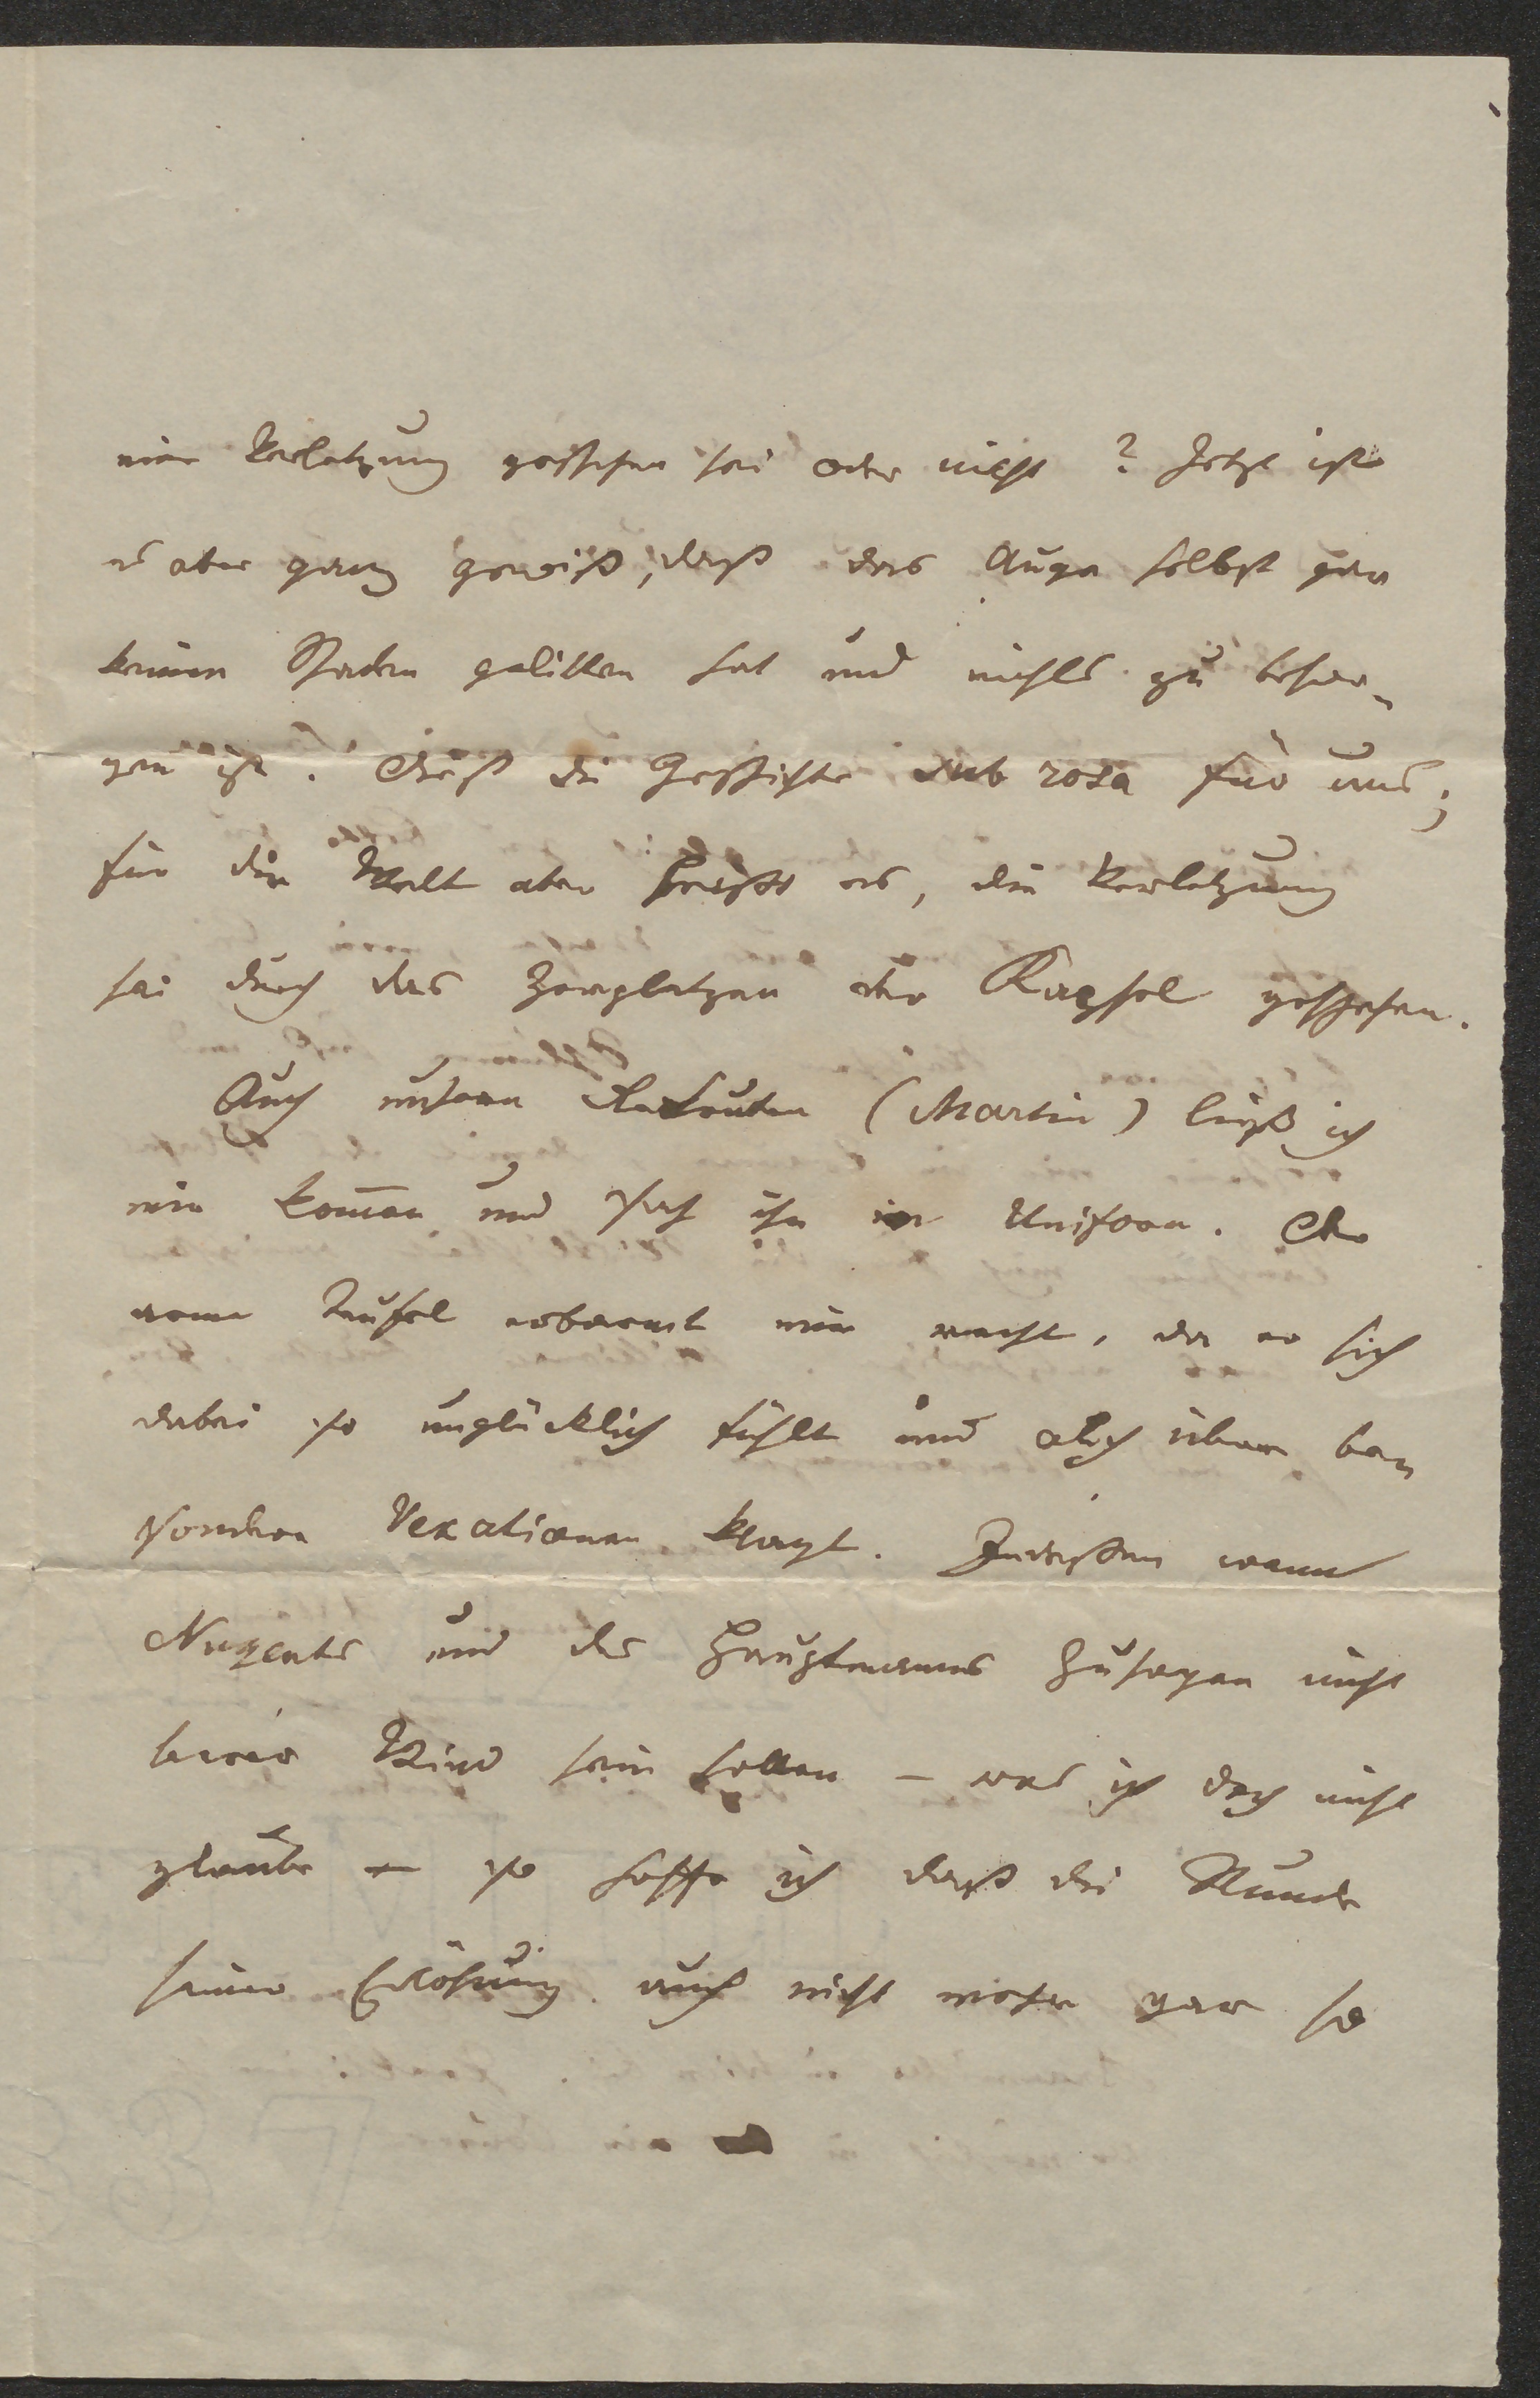 eine Verletzung geschehen sei oder nicht? Jetzt ist
es aber ganz gewiß, daß das Auge selbst gar
keinen Schaden gelitten hat und nichts zu besor-
gen ist. Dieß die Geschichte sub rosa für uns;
für die Welt aber heißt es, die Verletzung
sei durch das Zerplatzen der Kapsel geschehen.
Auch unsern Rekruten (Martin) ließ ich
mir kom̄en und sah ihn in Uniform. Der
arme Teufel erbarmt mir recht, da er sich
dabei so unglücklich fühlt und auch über be-
sondere Vexationen klagt. Indessen wenn
Nugents und des Hauptmanns Zusagen nicht
leerer Wind sein sollen – was ich doch nicht
glaube – so hoffe ich daß die Stunde
seiner Erlösung auch nicht mehr gar so